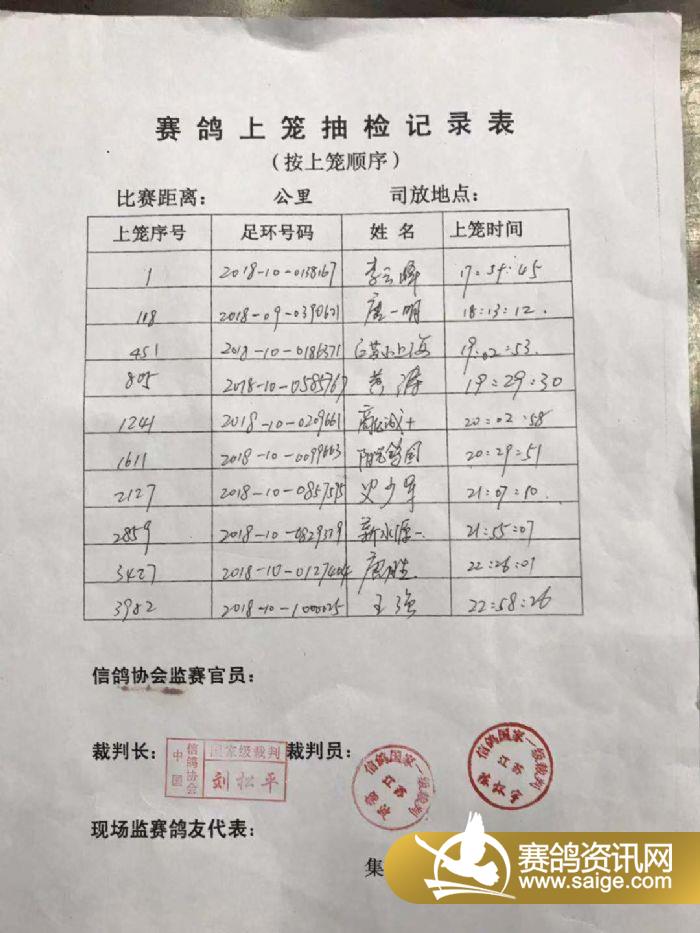 赛鸽上笼抽检记录表
（按上笼顺序）
比赛距离： 公里 司放地点：
上笼序号 足环号码 姓名 上笼时间
1 2018-10-0138167 李云峰 17:54:45
118 2018-09-0390621 唐一明 18:13:12
451 2018-10-0186371 上海 19:02:53
805 2018-10-0585767 黄涛 19:29:30
1241 2018-10-0209661 20:02:58
1611 2018-10-0099663 20:29:51
2127 2018-10-0857575 史少军 21:07:10
2859 2018-10-0829379 新水源一 21:55:07
3427 2018-10-0127404 唐胜 22:26:01
3982 2018-10-1000025 王强 22:58:26
信鸽协会监赛官员：
裁判长： 中国信鸽协会 国家级裁判 刘松平 裁判员： 信鸽国家一级裁判 江苏 信鸽国家一级裁判 江苏
现场监赛鸽友代表：
集
赛鸽资讯网
www.saige.com